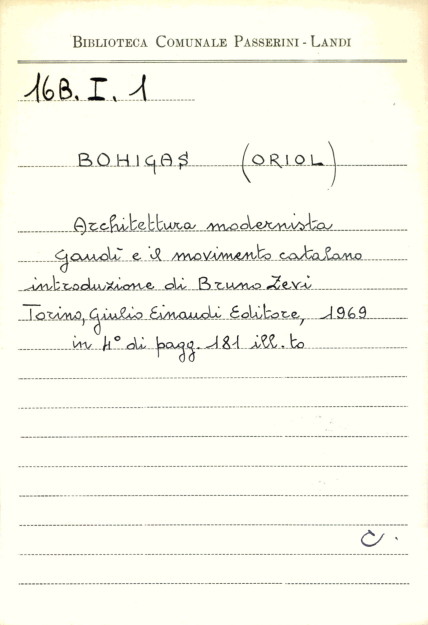 BIBLIOTECA COMUNALE PASSERINI - LANDI
16B. I. 1
BOHIGAS (ORIOL)
Architettura modernista
Gaudì e il movimento catalano
introduzione di Bruno Zevi
Torino, Giulio Einaudi Editore, 1969
in 4° di pagg. 181 ill.to
C.